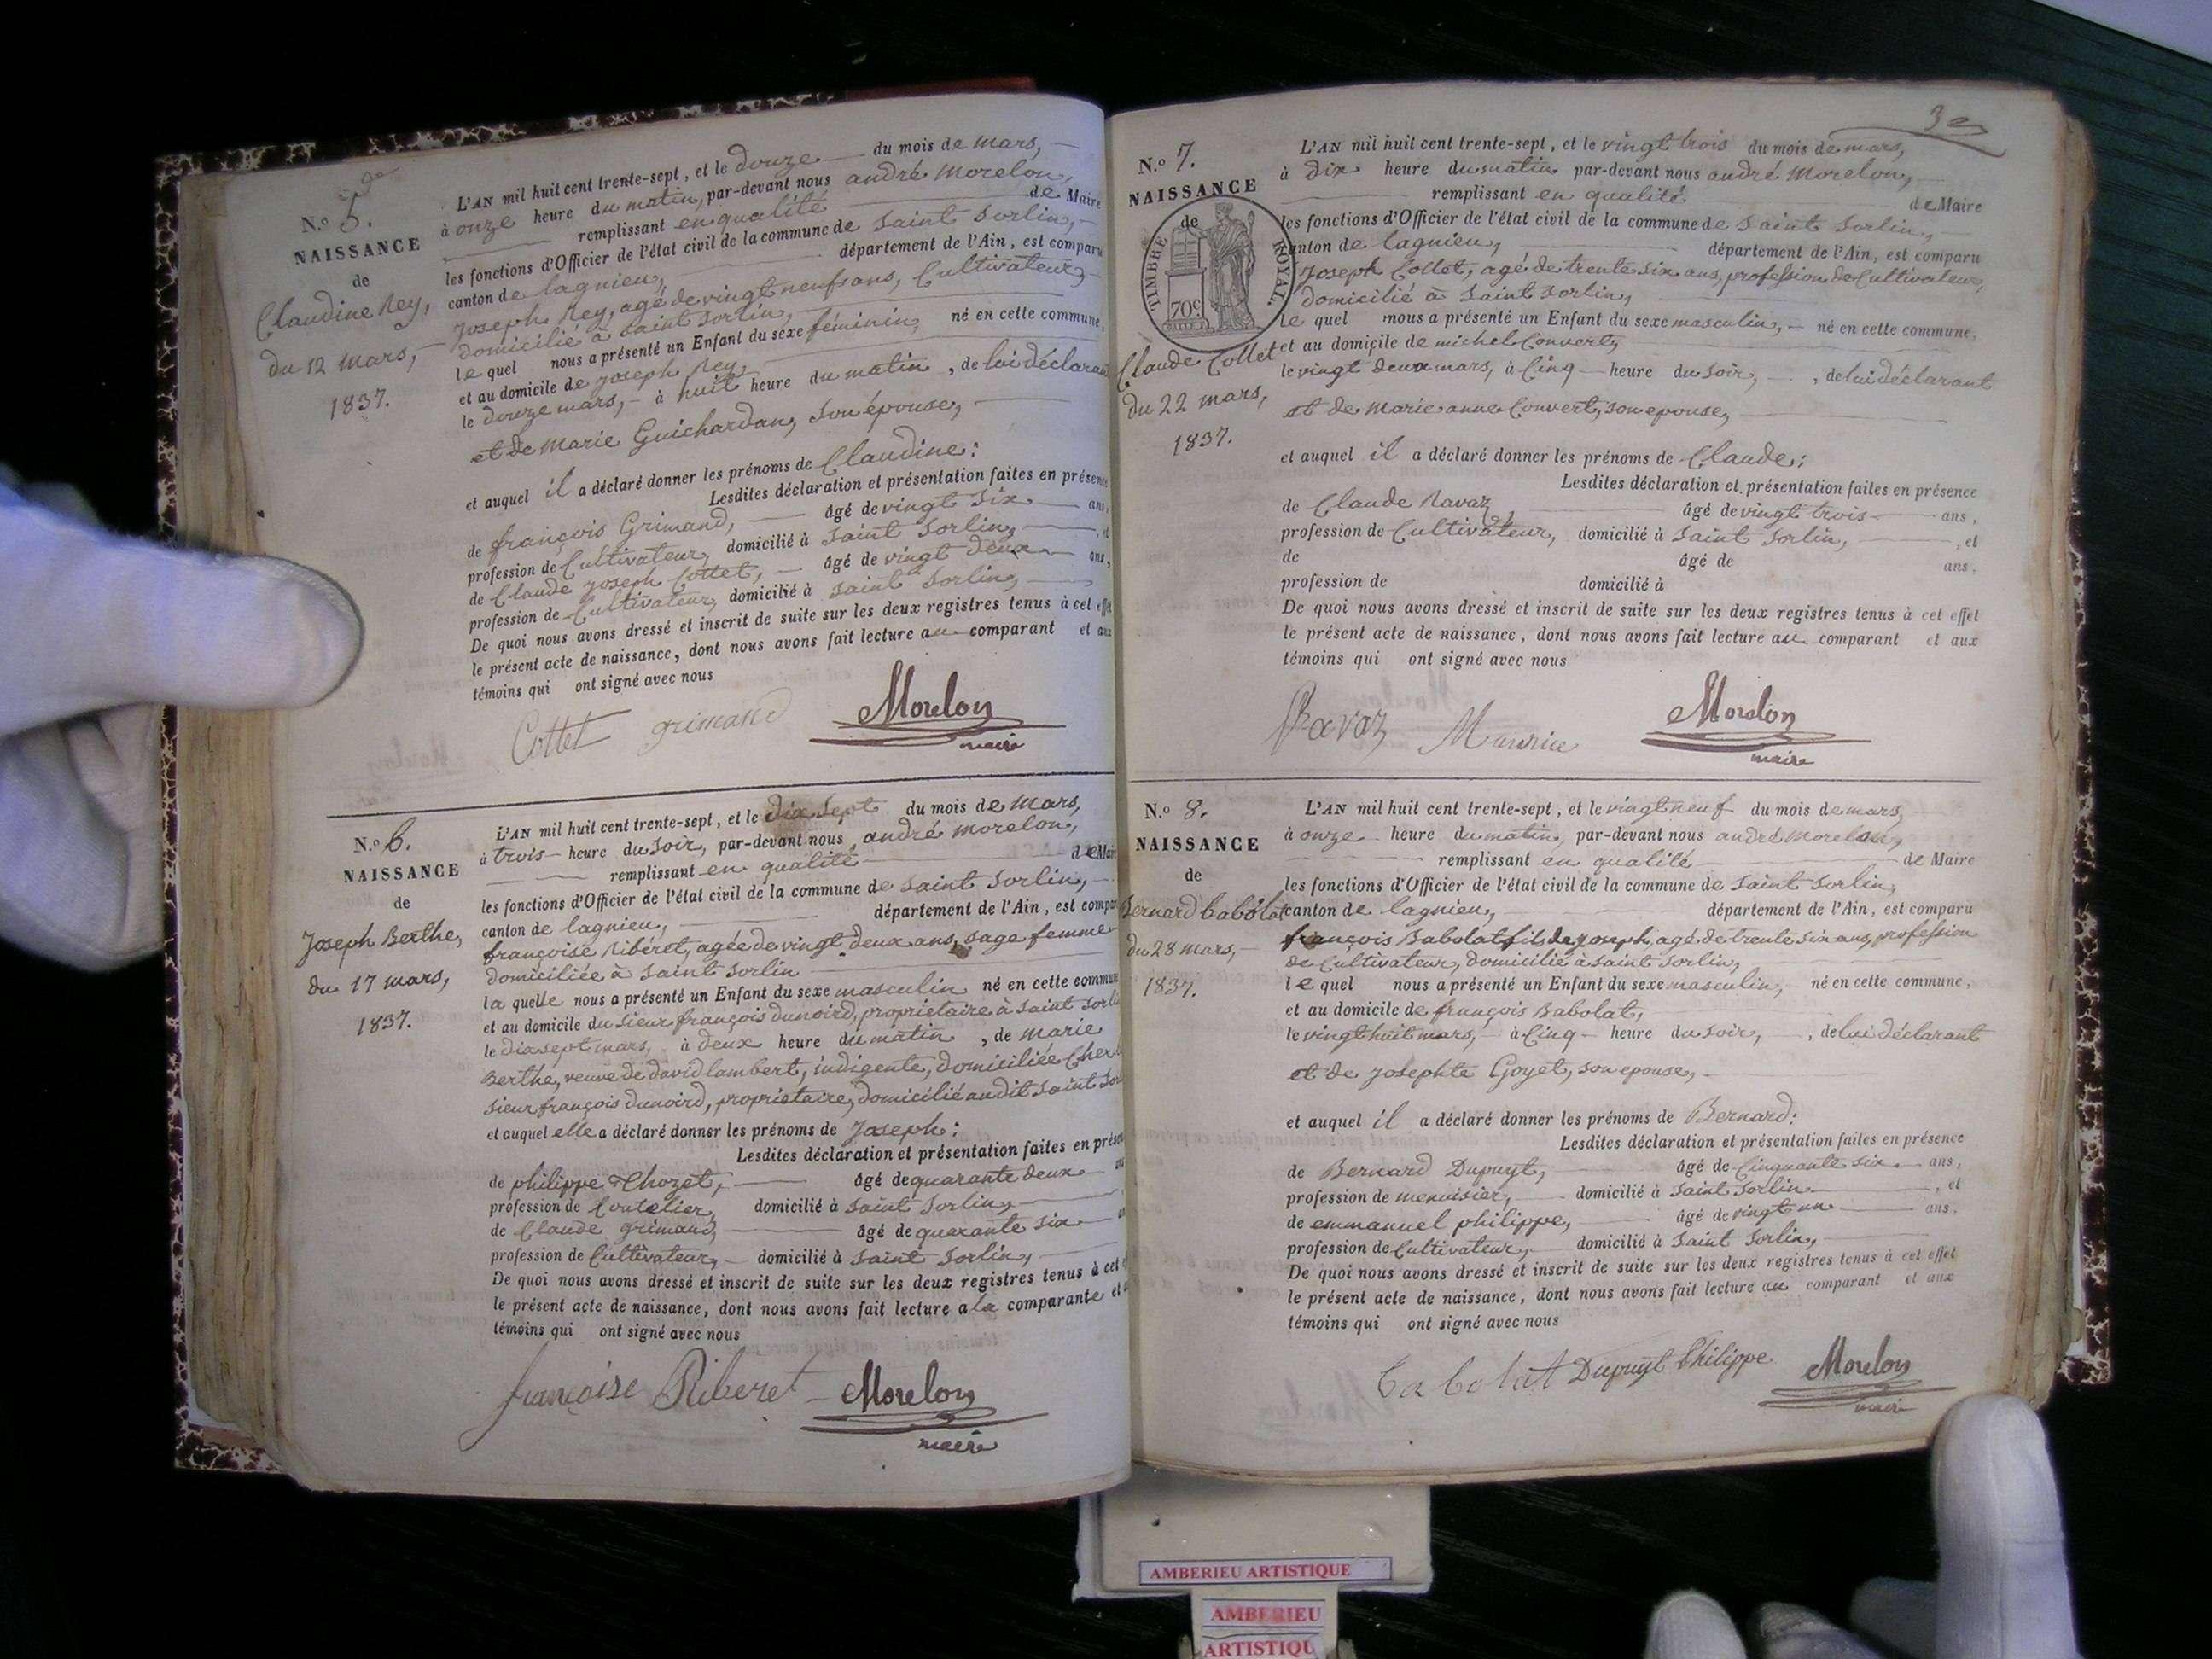 N.o 5.
NAISSANCE
de
Claudine Rey,
du 12 mars,
1837.
L'AN mil huit cent trente-sept, et le douze du mois de mars,
à onze heure du matin, par-devant nous andré morelon,
remplissant en qualité de Maire
les fonctions d'Officier de l'état civil de la commune de Saint Sorlin,
canton de lagnieu, département de l'Ain, est comparu
Joseph Rey, agé de vingt neuf ans, Cultivateur,
domicilié à Saint Sorlin,
le quel nous a présenté un Enfant du sexe féminin, né en cette commune,
et au domicile de Joseph Rey,
le douze mars, à huit heure du matin, de lui déclarant
et de marie Guichardan, son épouse,
et auquel il a déclaré donner les prénoms de Claudine:
Lesdites déclaration et présentation faites en présence
de françois Grimand, âgé de vingt six ans,
profession de Cultivateur, domicilié à Saint Sorlin, et
de Claude joseph Cottet, âgé de vingt deux ans,
profession de Cultivateur, domicilié à Saint Sorlin,
De quoi nous avons dressé et inscrit de suite sur les deux registres tenus à cet effet
le présent acte de naissance, dont nous avons fait lecture au comparant et aux
témoins qui ont signé avec nous
Cottet grimand Morelon
maire
N.o 6.
NAISSANCE
de
Joseph Berthe,
du 17 mars,
1837.
L'AN mil huit cent trente-sept, et le dix sept du mois de mars,
à trois heure du soir, par-devant nous andré morelon,
remplissant en qualité de Mai
les fonctions d'Officier de l'état civil de la commune de Saint Sorlin,
canton de lagnieu, département de l'Ain, est compar
françoise Ribéret, agée de vingt deux ans, sage femme
domiciliée à Saint Sorlin
la quelle nous a présenté un Enfant du sexe masculin né en cette commune
et au domicile du sieur françois dunoird, propriétaire à Saint Sorlin
le dix sept mars, à deux heure du matin, de marie
Berthe, veuve de david lambert, indigente, domiciliée Chez le
sieur françois dunoird, propriétaire, domicilié audit Saint Sor
et auquel elle a déclaré donner les prénoms de Joseph:
Lesdites déclaration et présentation faites en prése
de philippe Thozet, âgé de quarante deux
profession de Coutelier, domicilié à Saint Sorlin,
de Claude grimand, âgé de quarante six
profession de Cultivateur, domicilié à Saint Sorlin,
De quoi nous avons dressé et inscrit de suite sur les deux registres tenus à cet
le présent acte de naissance, dont nous avons fait lecture a la comparante et
témoins qui ont signé avec nous
françoise Riberet Morelon
maire
3
N.o 7.
NAISSANCE
de
TIMBRE ROYAL.
70c
Claude Collet
du 22 mars,
1837.
L'AN mil huit cent trente-sept, et le vingt trois du mois de mars,
à dix heure du matin par-devant nous andré morelon,
remplissant en qualité de Maire
les fonctions d'Officier de l'état civil de la commune de Saint Sorlin,
canton de lagnieu, département de l'Ain, est comparu
Joseph Collet, agé de trente six ans, profession de Cultivateur,
domicilié à Saint Sorlin,
le quel nous a présenté un Enfant du sexe masculin, né en cette commune,
et au domicile de michel Convert,
le vingt deux mars, à Cinq heure du soir, de lui déclarant
et de marie anne Convert, son epouse,
et auquel il a déclaré donner les prénoms de Claude:
Lesdites déclaration et présentation faites en présence
de Claude Ravaz, âgé de vingt trois ans,
profession de Cultivateur, domicilié à Saint Sorlin, et
de âgé de ans,
profession de domicilié à
De quoi nous avons dressé et inscrit de suite sur les deux registres tenus à cet effet
le présent acte de naissance, dont nous avons fait lecture au comparant et aux
témoins qui ont signé avec nous
Ravaz Maurice Morelon
maire
N.o 8.
NAISSANCE
de
Bernard babolat
du 28 mars,
1837.
L'AN mil huit cent trente-sept, et le vingt neuf du mois de mars,
à onze heure du matin, par-devant nous andré morelon,
remplissant en qualité de Maire
les fonctions d'Officier de l'état civil de la commune de Saint Sorlin,
canton de lagnieu, département de l'Ain, est comparu
françois Babolat fils de joseph, agé de trente six ans, profession
de Cultivateur, domicilié à Saint Sorlin,
le quel nous a présenté un Enfant du sexe masculin, né en cette commune,
et au domicile de françois Babolat,
le vingt huit mars, à Cinq heure du soir, de lui déclarant
et de josephte Goyet, son epouse,
et auquel il a déclaré donner les prénoms de Bernard:
Lesdites déclaration et présentation faites en présence
de Bernard Dupuyt, âgé de Cinquante six ans,
profession de menuisier, domicilié à Saint Sorlin, et
de emmanuel philippe, âgé de vingt un ans,
profession de Cultivateur, domicilié à Saint Sorlin,
De quoi nous avons dressé et inscrit de suite sur les deux registres tenus à cet effet
le présent acte de naissance, dont nous avons fait lecture au comparant et aux
témoins qui ont signé avec nous
babolat Dupuyt Philippe Morelon
maire
AMBERIEU ARTISTIQUE
AMBERIEU
ARTISTIQU